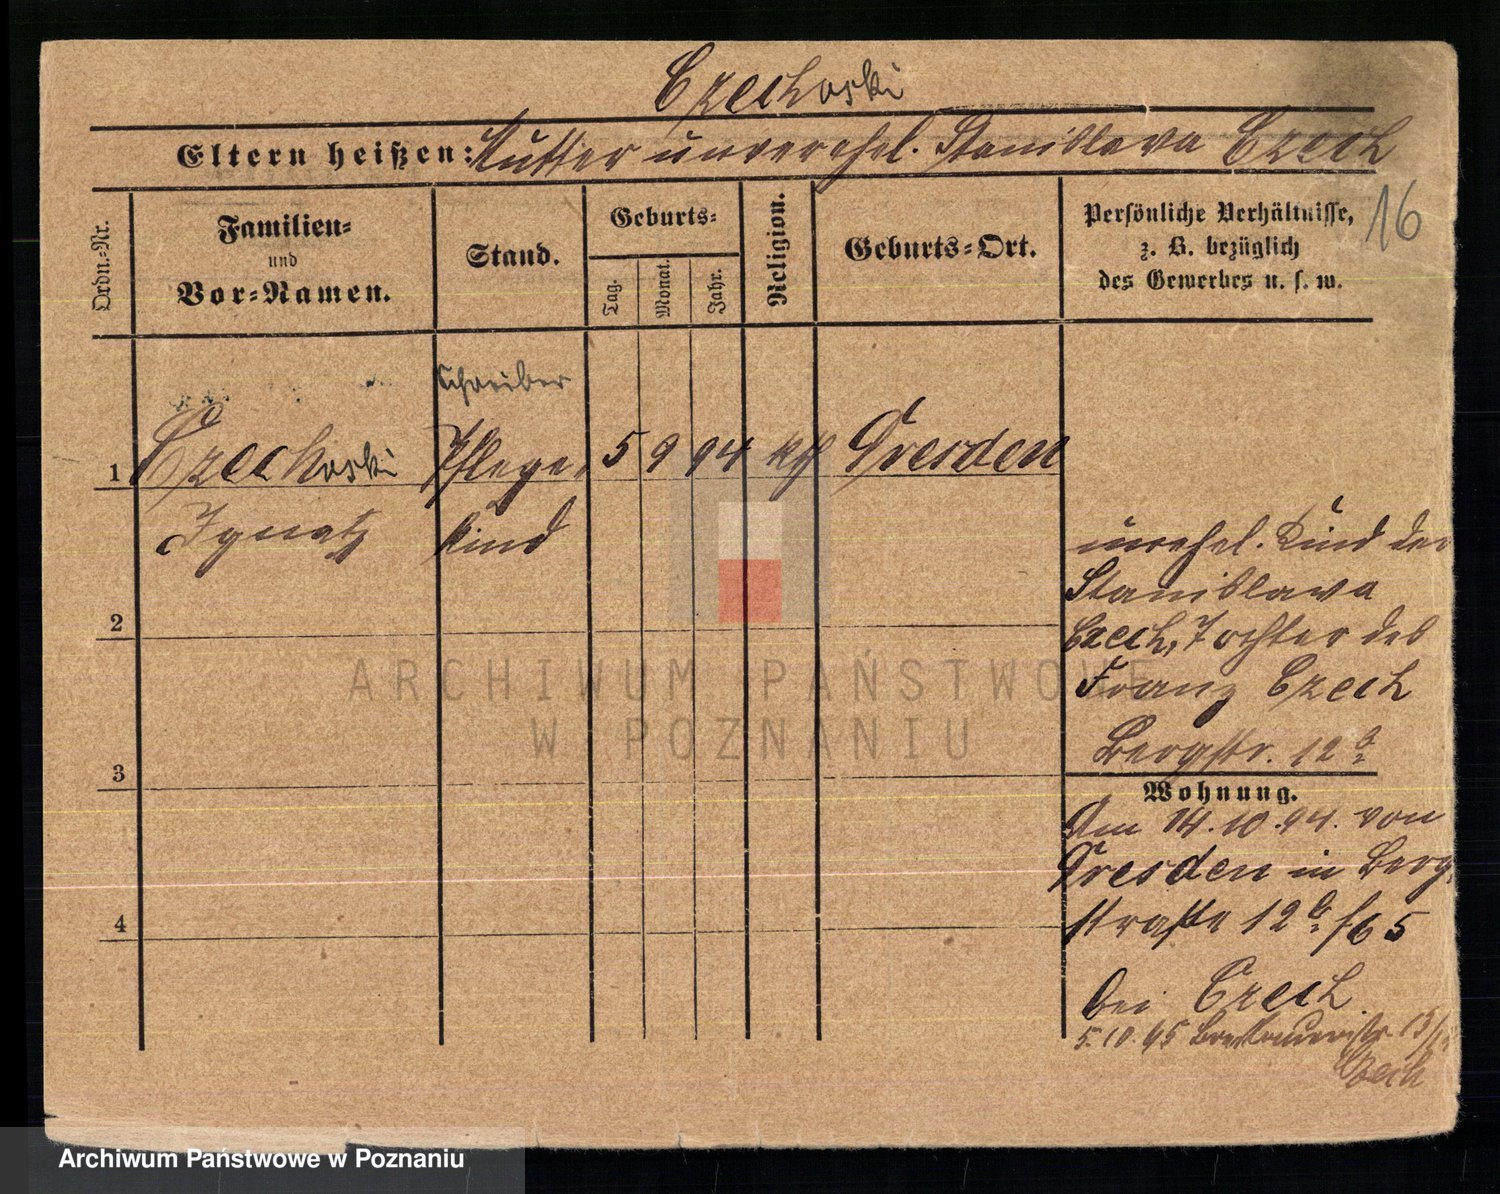 Czechoski
Eltern heißen: Mutter unverehel. Stanislava Czech
16
Ordn.-Nr.
Familien-
und
Vor-Namen.
Stand.
Geburts-
Tag.
Monat.
Jahr.
Religion.
Geburts-Ort.
Persönliche Verhältnisse,
z. B. bezüglich
des Gewerbes u. s. w.
Schreiber
1 Czechoski Pflege- 5 9 94 kth Dresden
Ignatz kind
unehel. Kind der
Stanislava
2
Czech, Tochter des
Franz Czech
Bergstr. 12a
3
Wohnung.
Am 14.10.94. von
Dresden in Berg
straße 12b f65
4
bei Czech
5.10.95 15/
Czech
ARCHIWUM PAŃSTWOWE
W POZNANIU
Archiwum Państwowe w Poznaniu